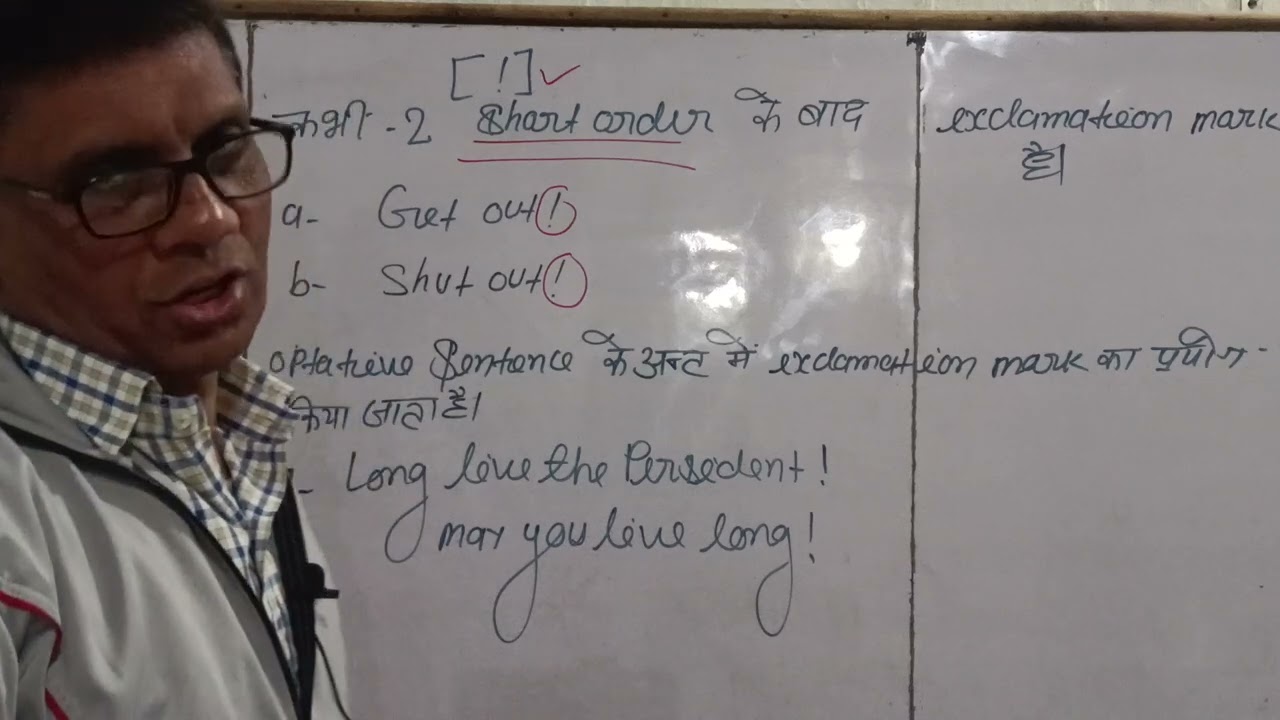 [!]✓
कभी-2 Short order के बाद exclamation mark
है।
a- Get out!
b- Shut out!
optative Sentence के अन्त में exclamation mark का प्रयोग
किया जाता है।
- Long live the Persedent!
may you live long!